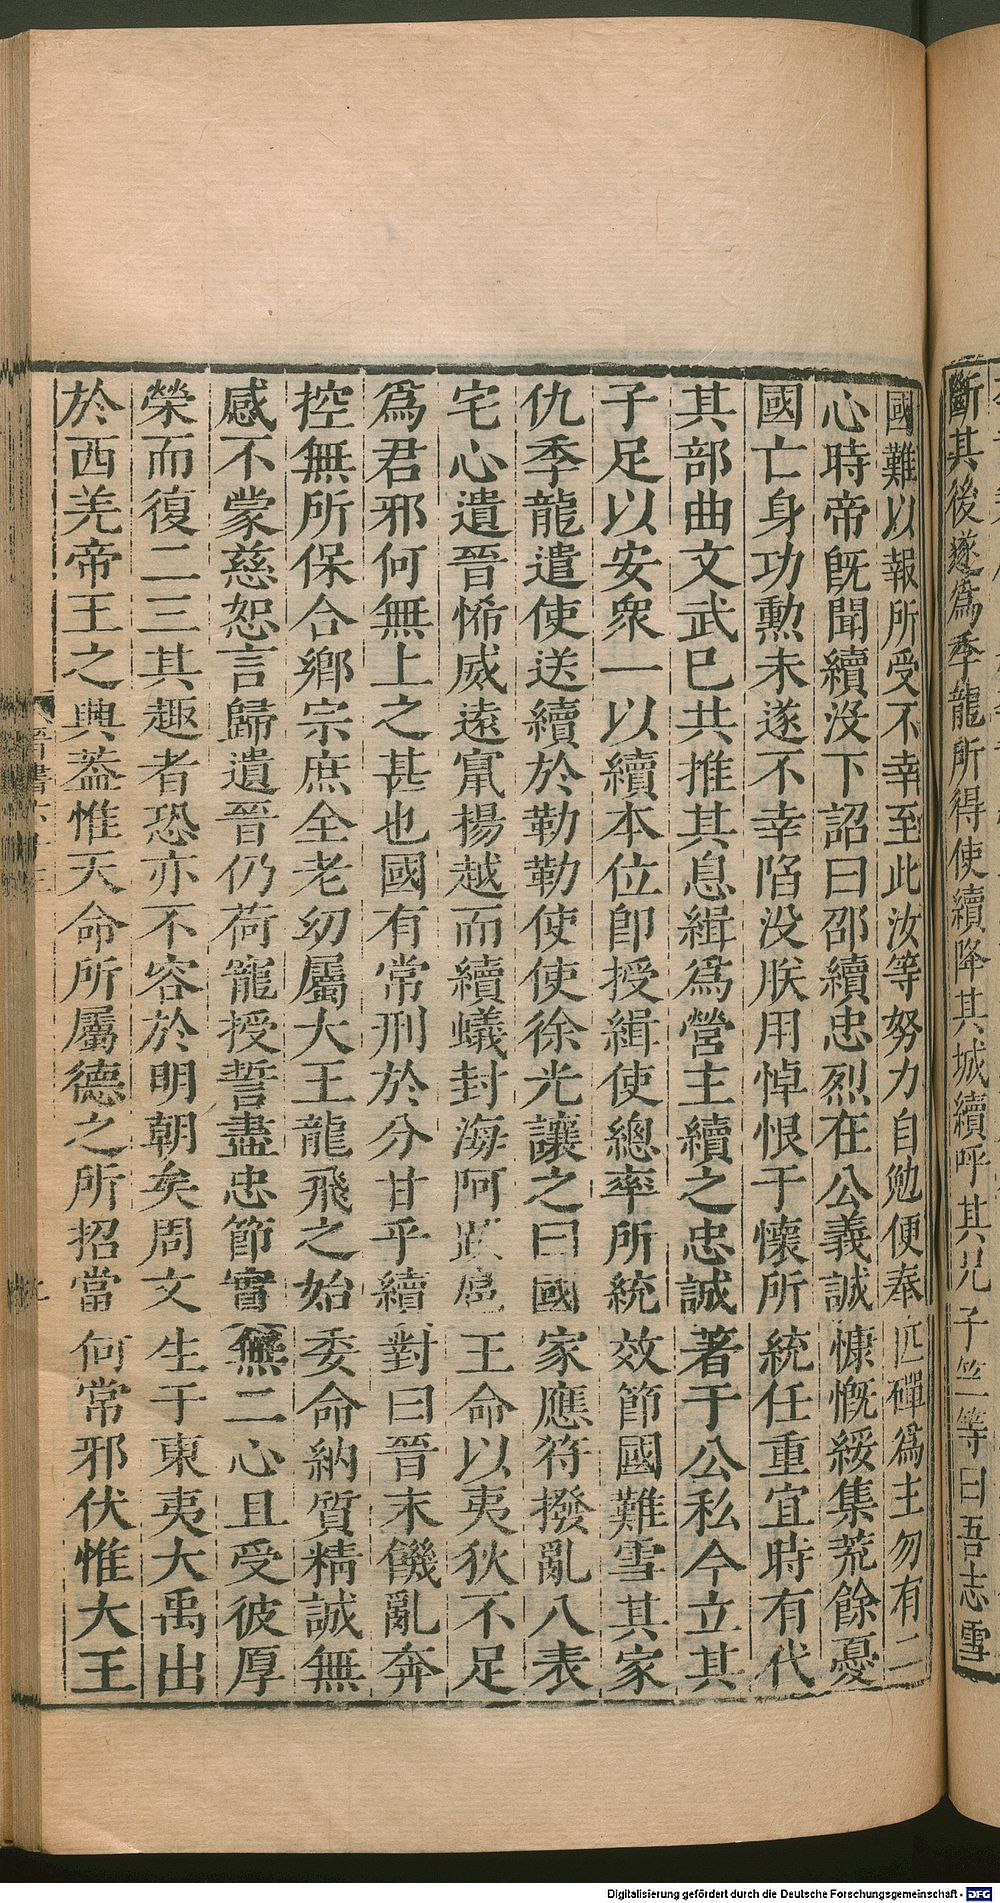 斷其後遂爲季龍所得使續降其城續呼其兄子竺等曰吾志雪
國難以報所受不幸至此汝等努力自勉便奉匹磾爲主勿有二
心時帝既聞續没下詔曰邵續忠烈在公義誠慷慨綏集荒餘憂
國亡身功勲未遂不幸陷没朕用悼恨于懷所統任重宜時有代
其部曲文武已共推其息緝爲營主續之忠誠著于公私今立其
子足以安衆一以續本位即授緝使總率所統效節國難雪其家
仇季龍遣使送續於勒勒使使徐光讓之曰國家應符撥亂八表
宅心遺晉怖威遠竄揚越而續蟻封海阿跋扈王命以夷狄不足
爲君邪何無上之甚也國有常刑於分甘乎續對曰晉末饑亂奔
控無所保合鄉宗庶全老幼屬大王龍飛之始委命納質精誠無
感不蒙慈恕言歸遺晉仍荷寵授誓盡忠節實無二心且受彼厚
榮而復二三其趣者恐亦不容於明朝矣周文生于東夷大禹出
於西羌帝王之興蓋惟天命所屬德之所招當何常邪伏惟大王
晉書
Digitalisierung gefördert durch die Deutsche Forschungsgemeinschaft - DFG